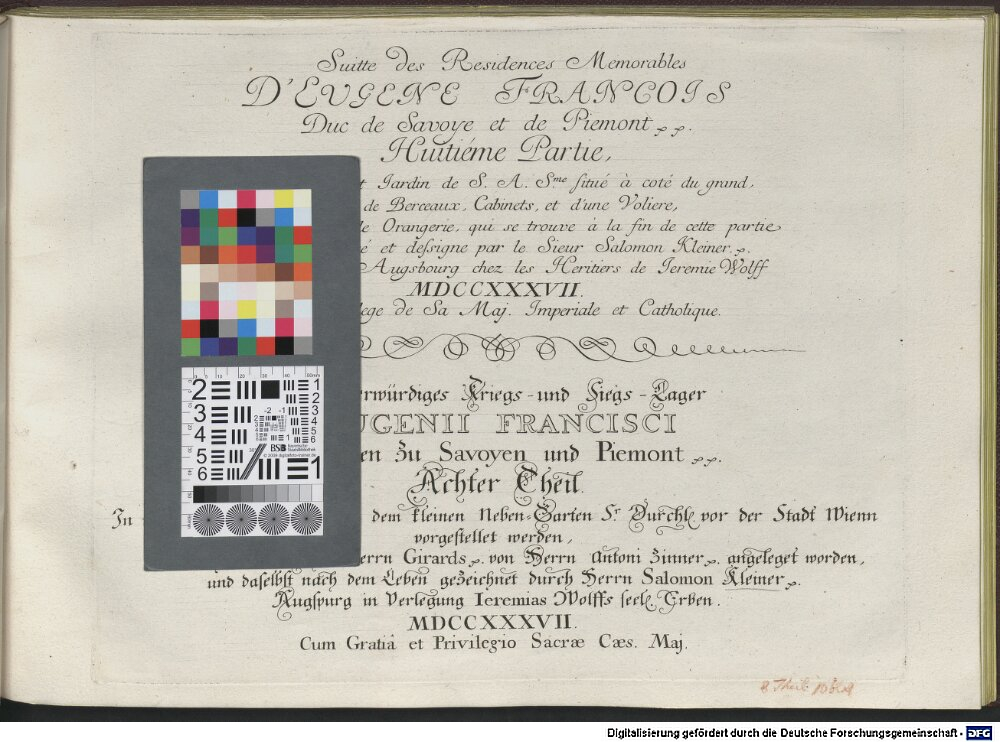 Suitte des Residences Memorables
D'EVGENE FRANCOIS
Duc de Savoye et de Piemont
Huitiéme Partie,
Jardin de S. A. Sme situé à coté du grand,
de Berceaux, Cabinets, et d'une Voliere,
Orangerie, qui se trouve à la fin de cette partie
et dessigne par le Sieur Salomon Kleiner
Augsbourg chez les Heritiers de Ieremie Wolff
MDCCXXXVII.
de Sa Maj. Imperiale et Catholique.
Kriegs - und Siegs - Lager
FRANCISCI
Zu Savoyen und Piemont
Achter Theil.
In
dem kleinen Neben-Garten Sr. Durchl. vor der Stadt Wienn
vorgestellet werden,
Girards von Herrn Antoni Zinner angeleget worden,
und daselbst nach dem Leben gezeichnet durch Herrn Salomon Kleiner
Augspurg in Verlegung Ieremias Wolffs seel. Erben.
MDCCXXXVII.
Cum Gratiâ et Privilegio Sacræ Cæs. Maj.
2 1
3 2
4 3
5 4
6 5
6
BSB
1
Digitalisierung gefördert durch die Deutsche Forschungsgemeinschaft - DFG